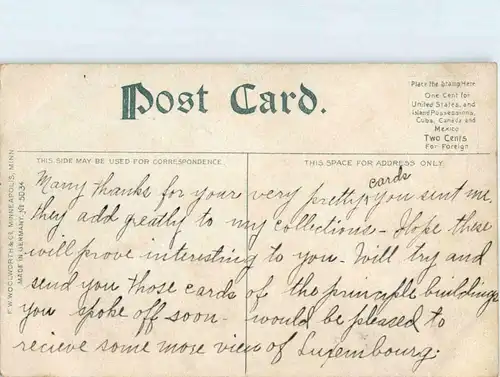 Post Card.
Place the Stamp Here
One Cent for
United States, and
Island Possessions,
Cuba, Canada and
Mexico
Two Cents
For Foreign
THIS SIDE MAY BE USED FOR CORRESPONDENCE.
THIS SPACE FOR ADDRESS ONLY.
F. W. WOOLWORTH & Co., MINNEAPOLIS, MINN.
MADE IN GERMANY. No. 5034
cards
Many thanks for your very pretty you sent me.
they add greatly to my collections - Hope these
will prove interesting to you - Will try and
send you those cards of the principle buildings
you spoke off soon - would be pleased to
recieve some more view of Luxembourg: